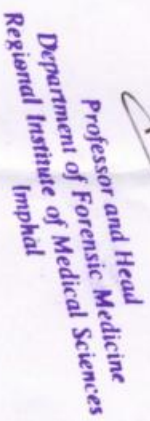 Professor and Head
Department of Forensic Medicine
Regional Institute of Medical Sciences
Imphal